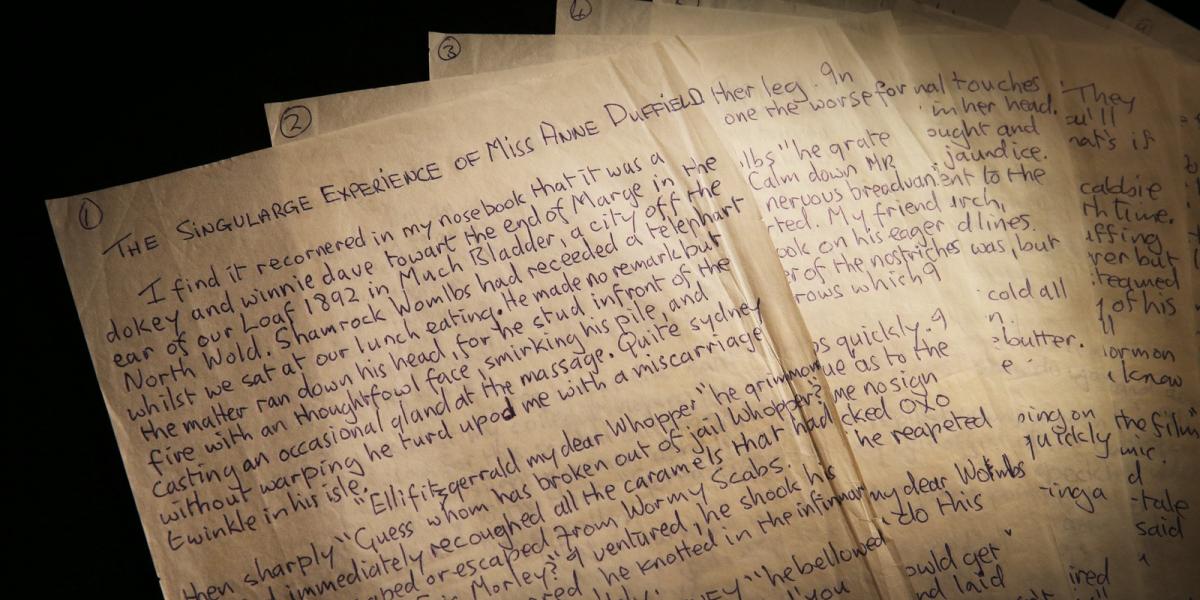 1
THE SINGULARGE EXPERIENCE OF MISS ANNE DUFFIELD
I find it recornered in my nosebook that it was a
dokey and winnie dave towart the end of Marge in the
ear of our Loaf 1892 in Much Bladder, a city off the
North Wold. Shamrock Wolmbs had receeded a telephart
whilst we sat at our lunch eating. He made no remark but
the matter ran down his head, for he stud infront of the
fire with an thoughtfowl face, smirking his pile, and
casting an occasional gland at the massage. Quite sydney
without warping he turd upod me with a miscarriage
twinkle in his isle.
"Ellifitzgerrald my dear Whopper" he grimmon
then sharply "Guess whom has broken out of jail Whopper?"
immediately recoughed all the caramels that had
or escaped from Wormy Scabs.
Morley? I ventured, he shook his
he knotted in the infirmary
he bellowed
2
ther leg. In
one the worse for
lbs" he grate
Calm down MR
nervous breadvan
ted. My friend
ook on his eager
er of the nostriches
rows which I
quickly. I
ue as to the
me no sign
cked OXO
he reapeted
my dear Wolmbs
do this
ould get
and laid
3
nal touches
in her head.
ought and
jaundice.
ent to the
irch,
d lines.
was, but
cold all
n.
butter.
e
ping on
quickly
ringa
ired
They
ou'll
hat's if
caldsie
th time.
iffing
yer but
tequred
of his
ll
lormon
know
the film"
mic.
d
tale
said
4